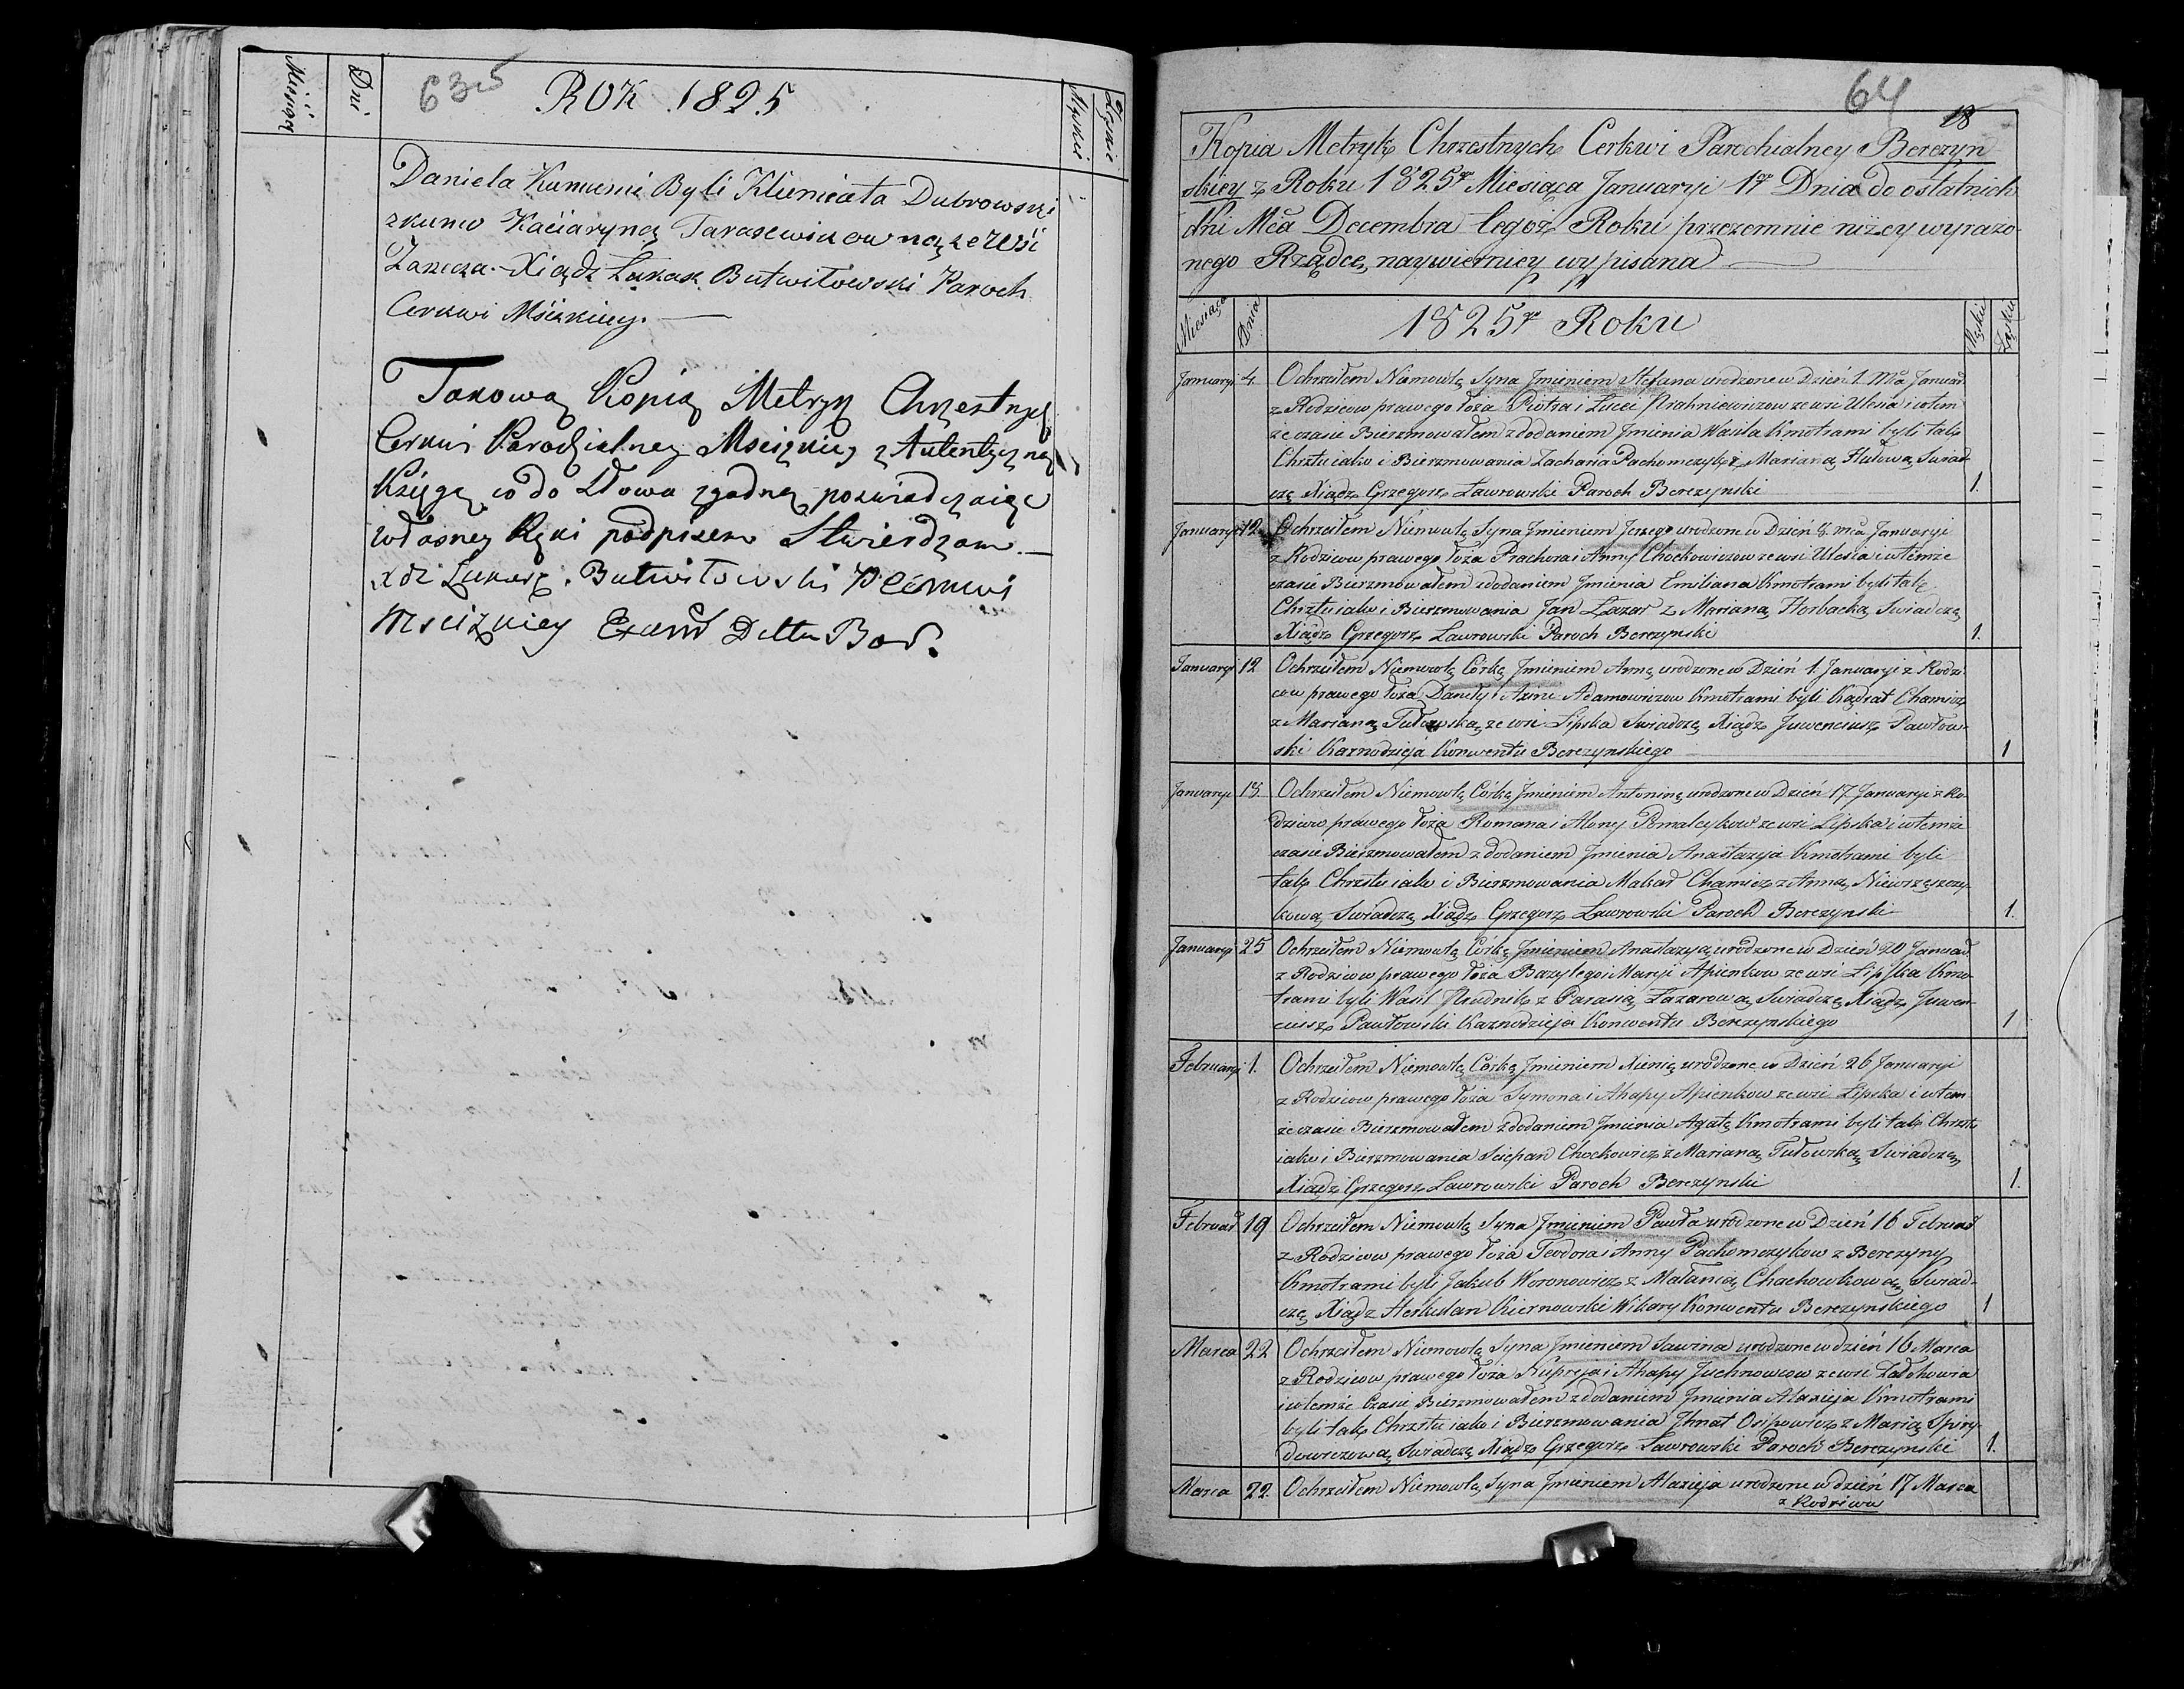 Miesiąc
Dni
635
ROK 1825
Męskie
Żeńskie
Daniela Kumumi Byli Klimiata Dubrowski
zkumo Kaciaryną Tarasewiczowną ze Wsi
Zarzecza. Xiądz Łukasz Butwiłowski Paroch
Cerkwi Mściżkiey.
Takową Kopią Metryk Chrzestnych
Cerkwi Parochialney Mściżkiey z Autentyczną
Xięgą co do Słowa zgodną poświadczaiąc
własney Ręki podpisem Stwierdzam.
xdz Łukasz Butwiłowski P Cerkwi
Mściżkiey Exam Dttu Bor.
64
18
Kopia Metryk Chrzestnych Cerkwi Parochialney Berezyn
skiey z Roku 1825go Miesiąca Januaryi 1go Dnia do ostatnich
dni Mca Decembra tegoż Roku przezemnie niżey wyrażo-
nego Rządcę naywierniey wypisana
Miesiąca
Dnia
1825go Roku
Męskie
Żęskie
Januaryi 4. Ochrzciłem Niemowlę Syna Jmieniem Stefana urodzone w Dzień 1. Mca Januar.
z Rodzicow prawego łoża Piotra i Łucei Prahniewiczow ze wsi Ulesia i wtem
że czasie Bierzmowałem z dodaniem Jmienia Wasila Kmotrami byli tak
Chrztu iako i Bierzmowania Zacharia Pachomczyk z Marianą Hutową Swiad-
czę Xiądz Grzegorz Ławrowski Paroch Berezynski 1.
Januaryi 12 Ochrzciłem Niemowlę Syna Jmieniem Jerzego urodzone w Dzień 8. mca Januaryi
z Rodzicow prawego łoża Prachora i Anny Chockowiczow ze wsi Ulesia i wtemże
czasie Bierzmowałem z dodaniem Jmienia Emiliana Kmotrami byli tak
Chrztu iako i Bierzmowania Jan Łazar z Marianą Horbacką Swiadczę
Xiądz Grzegorz Ławrowski Paroch Berezynski 1.
Januaryi 12 Ochrzciłem Niemowlę Córkę Jmieniem Annę urodzone w Dzień 1. Januaryi z Rodzi-
cow prawego łoża Daniły i Anni Adamowiczow Kmotrami byli Kądrat Chamicz
z Marianą Tułowską ze wsi Lipska Swiadczę Xiądz Juwenciusz Pawłow-
ski Kaznodzieja Konwentu Berezynskiego 1
Januaryi 18. Ochrzciłem Niemowlę Córkę Jmieniem Antoninę urodzone w Dzień 17 Januaryi z Ro-
dzicow prawego łoża Romana i Alony Pomalcykow ze wsi Lipska i wtemże
czasie Bierzmowałem z dodaniem Jmienia Anastazyja Kmotrami byli
tak Chrztu iako i Bierzmowania Makar Chamicz z Anną Niewrzęszczy-
kową Swiadczę Xiądz Grzegorz Ławrowski Paroch Berezynski 1.
Januaryi 25 Ochrzciłem Niemowlę Córkę Jmieniem Anastazyą urodzone w Dzień 20 Januar.
z Rodzicow prawego łoża Bazylego i Maryi Apienkow ze wsi Lipska Kmo-
trami byli Wasil Prudnik z Parasią Łazarową Swiadczę Xiądz Juwen-
ciusz Pawłowski Kaznodzieja Konwentu Berezynskiego 1
Februaryi 1. Ochrzciłem Niemowlę Córkę Jmieniem Xienię urodzone w Dzień 26 Januaryi
z Rodzicow prawego łoża Symona i Ahapy Apienkow ze wsi Lipska i wtem
że czasie Bierzmowałem z dodaniem Jmienia Agatę Kmotrami byli tak Chrztu
iako i Bierzmowania Sciepan Chockowicz z Marianą Tułowską Swiadczę
Xiądz Grzegorz Ławrowski Paroch Berezynski 1.
Februar 19 Ochrzciłem Niemowlę Syna Jmieniem Pawła urodzone w Dzień 16 Februar
z Rodzicow prawego łoża Teodora i Anny Pachomczykow z Berezyny
Kmotrami byli Jakub Woronowicz z Małanią Chachowkową Swiad-
czę Xiądz Herkulan Kiernowski Wikary Konwentu Berezynskiego 1
Marca 22 Ochrzciłem Niemowlę Syna Jmieniem Sawina urodzone w dzień 16 Marca
z Rodzicow prawego łoża Kupryja i Ahapy Juchnowcow ze wsi Zadohowia
i wtemże Czasie Bierzmowałem z dodaniem Jmienia Alaxieja Kmotrami
byli tak Chrztu iako i Bierzmowania Jhnat Osipowicz z Marią Spiry-
dowiczową Swiadczę Xiądz Grzegorz Ławrowski Paroch Berezynski 1.
Marca 22. Ochrzciłem Niemowlę Syna Jmieniem Alaxieja urodzone w dzień 17 Marca
z Rodzicow